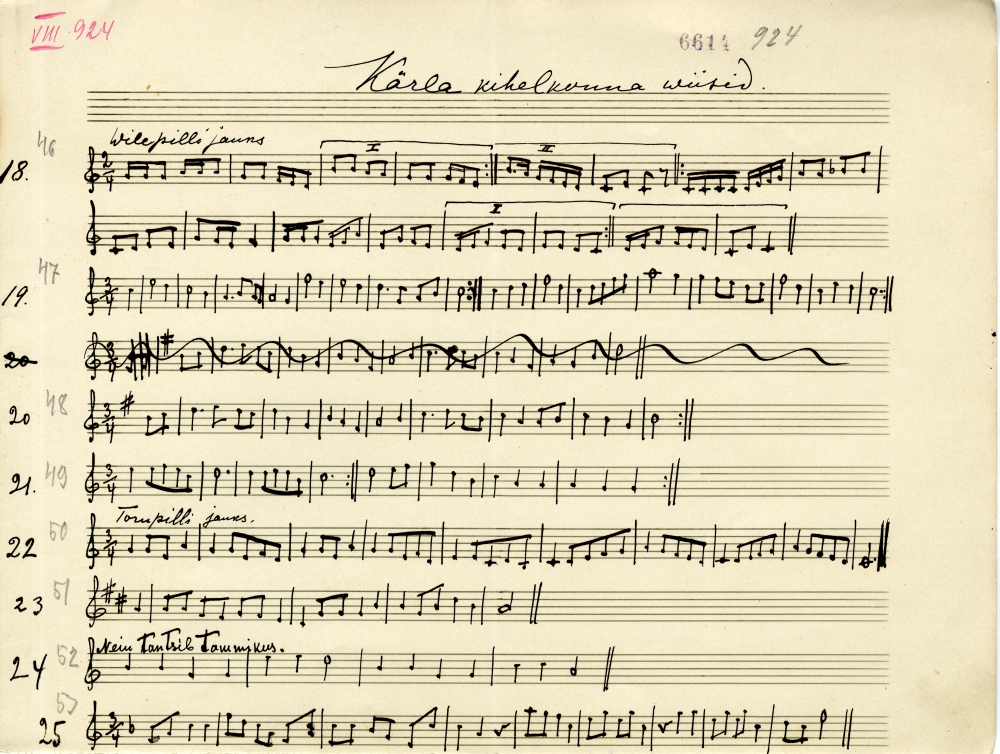 VIII 924
6614 924
Kärla kihelkonna wiisid.
46
Wilepilli jauns
18.
I II
I
47
19.
20
48
20
49
21.
50
Torupilli jauns.
22
51
23
52
Nein tantsib tammikus.
24
53
25